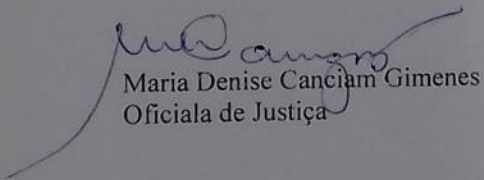 Maria Denise Canciam Gimenes
Oficiala de Justiça